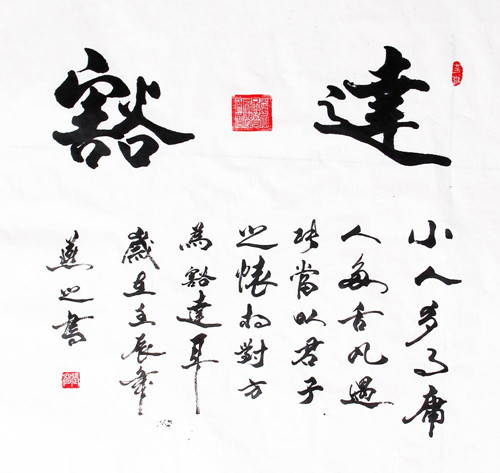 豁達
小人多事庸
人舌凡遇
此當以君子
之懷相對方
為豁達耳
歲在壬辰年
燕之書